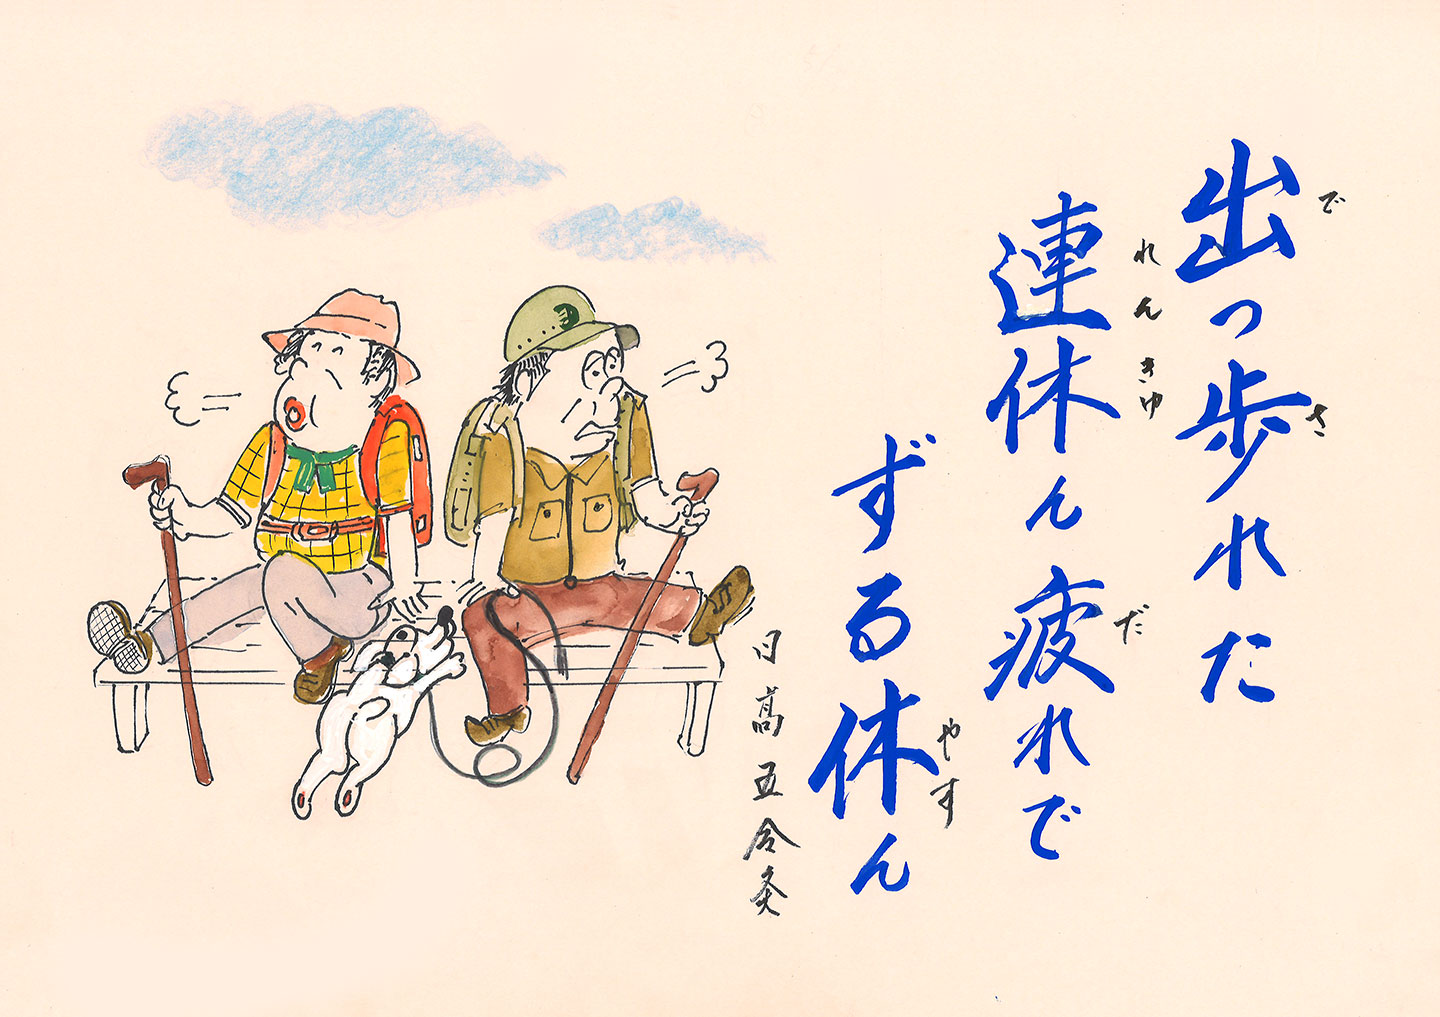 出っ歩れた
でさ
連休ん疲れで
れんきゆだ
ずる休ん
やす
日高五合灸